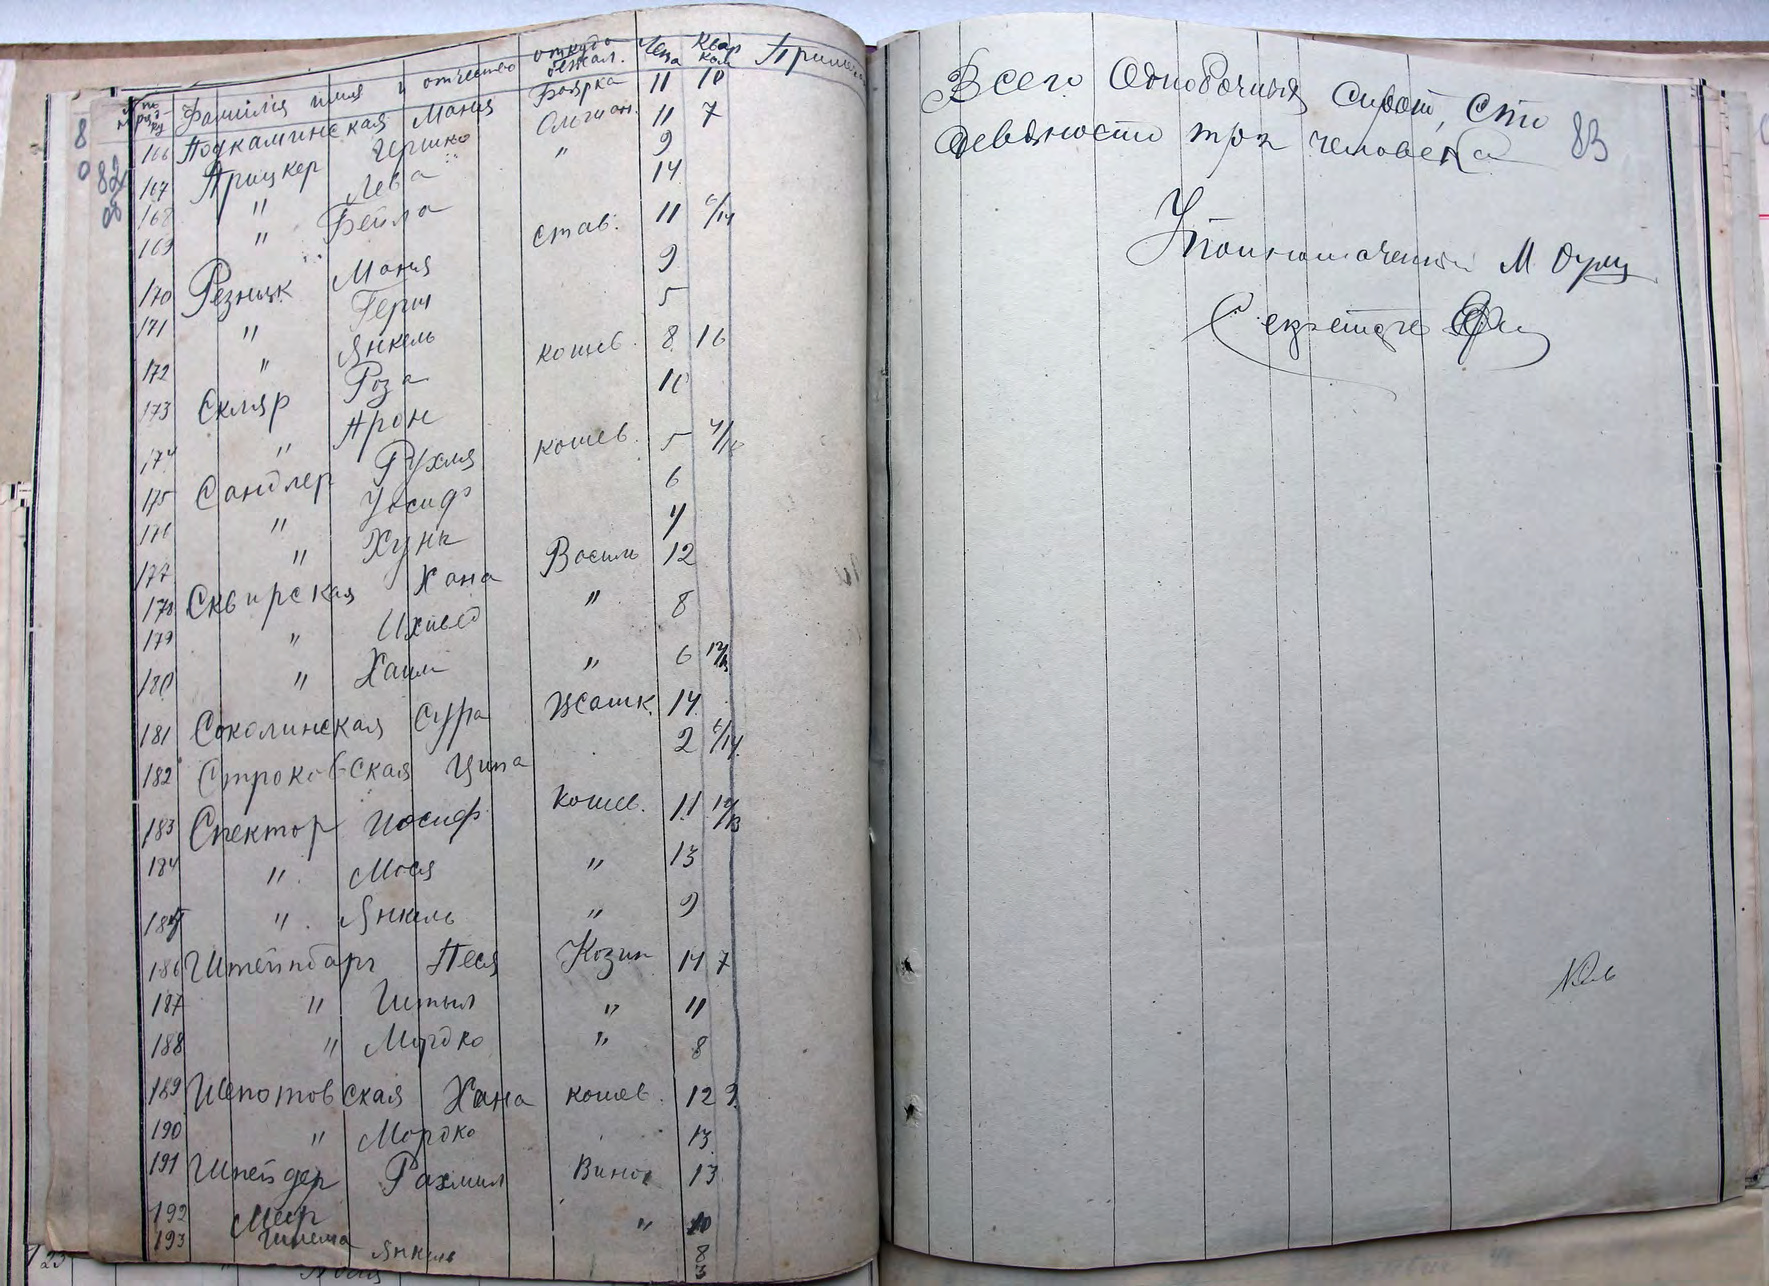 Фамилія имя и отчество откуда бежал. Лета Квар Примеч
166 Подкаминская Маня Боярка 11 10
167 Прицкер Гершко 11 7
168 " Лева " 9
169 " Бейла 14
170 Резник Маня став. 11 6/14
171 " Герш 9
172 " Янкель 5
173 Скляр Роза кошев. 8 16
174 " Арон 10
175 Сандлер Рухля кошев. 5
176 " Иосиф 6
177 " Хуна 4
178 Сквирская Хана Василь 12
179 " " 8
180 " Хаим " 6 12/13
181 Соколинская Сура Жашк. 14
182 Строковская Ципа 2 6/14
183 Спектор Иосиф кошев. 11 12/13
184 " Мося " 13
185 " Янкель " 9
186 Штейнбарг Песя Козин 14 7
187 " " 11
188 " Мордко " 8
189 Шепотовская Хана кошев. 12 9
190 " Мордко 13
191 Шнейдер Рахмил Виног 13
192 Меер " 10
193 Янкель 8
3
8
82
123
Всего Однобочныя сирот, Сто
девяносто три человека
83
Уполномоченный М
Секретарь